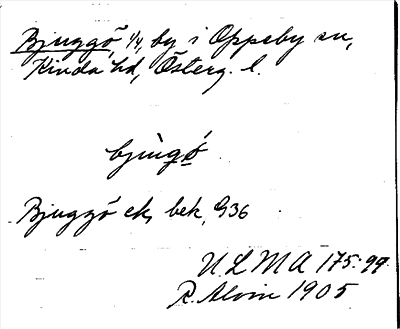 Bjuggö, 1/4, by i Oppeby sn,
Kinda hd, Österg. l.
bjùgö́
Bjuggö ek, bek, G36
U.L.M.A 175:99.
R. Alvin 1905